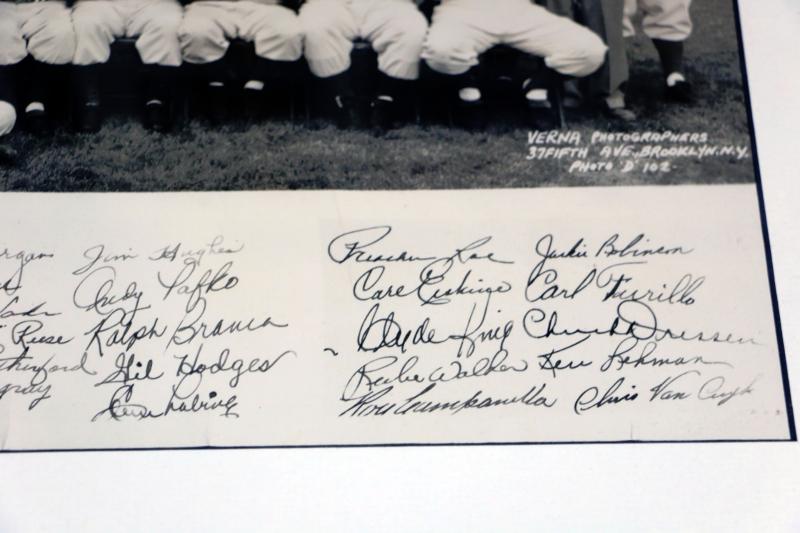 VERNA PHOTOGRAPHERS
37 FIFTH AVE., BROOKLYN. N.Y.
PHOTO 'D' 102
Jim Hughes
Andy Pafko
Reese Ralph Branca
Gil Hodges
Preacher Roe Jackie Robinson
Carl Erskine Carl Furillo
Clyde King Chuck Dressen
Rube Walker Ken Lehman
Roy Campanella Chris Van Cuyk